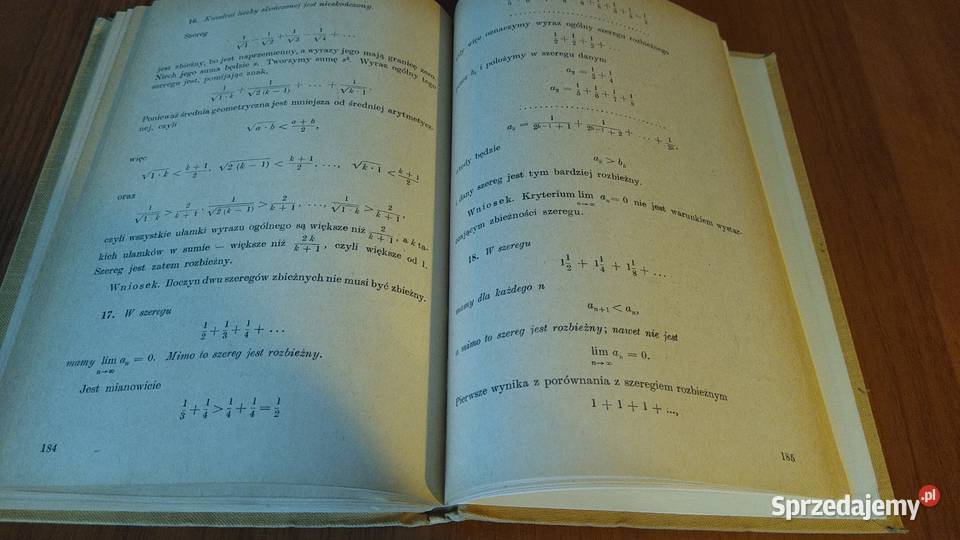 16. Kwadrat liczby skończonej jest nieskończony.
Szereg
1/√1 − 1/√2 + 1/√3 − 1/√4 + ...
jest zbieżny, bo jest naprzemienny, a wyrazy jego mają granicę zero.
Niech jego suma będzie s. Tworzymy sumę s². Wyraz ogólny tego
szeregu jest, pomijając znak,
1/√1·k + 1/√2(k−1) + ... + 1/√k·1.
Ponieważ średnia geometryczna jest mniejsza od średniej arytmetycz-
nej, czyli
√a·b < (a+b)/2,
więc
√1·k < (k+1)/2, √2(k−1) < (k+1)/2, ..., √k·1 < (k+1)/2,
oraz
1/√1·k > 2/(k+1), 1/√2(k−1) > 2/(k+1), ..., 1/√1·k > 2/(k+1),
czyli wszystkie ułamki wyrazu ogólnego są większe niż 2/(k+1), a k ta-
kich ułamków w sumie — większe niż 2k/(k+1), czyli większe od 1.
Szereg jest zatem rozbieżny.
Wniosek. Iloczyn dwu szeregów zbieżnych nie musi być zbieżny.
17. W szeregu
1/2 + 1/3 + 1/4 + ...
mamy lim aₙ = 0. Mimo to szereg jest rozbieżny.
n→∞
Jest mianowicie
1/3 + 1/4 > 1/4 + 1/4 = 1/2
184
więc oznaczymy wyraz ogólny szeregu rozbieżnego
1/2 + 1/2 + 1/2 + ...
i położymy w szeregu danym
a₂ = 1/3 + 1/4
a₃ = 1/5 + 1/6 + 1/7 + 1/8
+ ... +
będzie
> bₖ
dany szereg jest tym bardziej rozbieżny.
Wniosek. Kryterium lim aₙ = 0 nie jest warunkiem wystar-
n→∞
czającym zbieżności szeregu.
18. W szeregu
1 1/2 + 1 1/4 + 1 1/8 + ...
mamy dla każdego n
aₙ₊₁ < aₙ,
a mimo to szereg jest rozbieżny; nawet nie jest
lim aₙ = 0.
n→∞
Pierwsze wynika z porównania z szeregiem rozbieżnym
1 + 1 + 1 + ...,
185
Sprzedajemy.pl